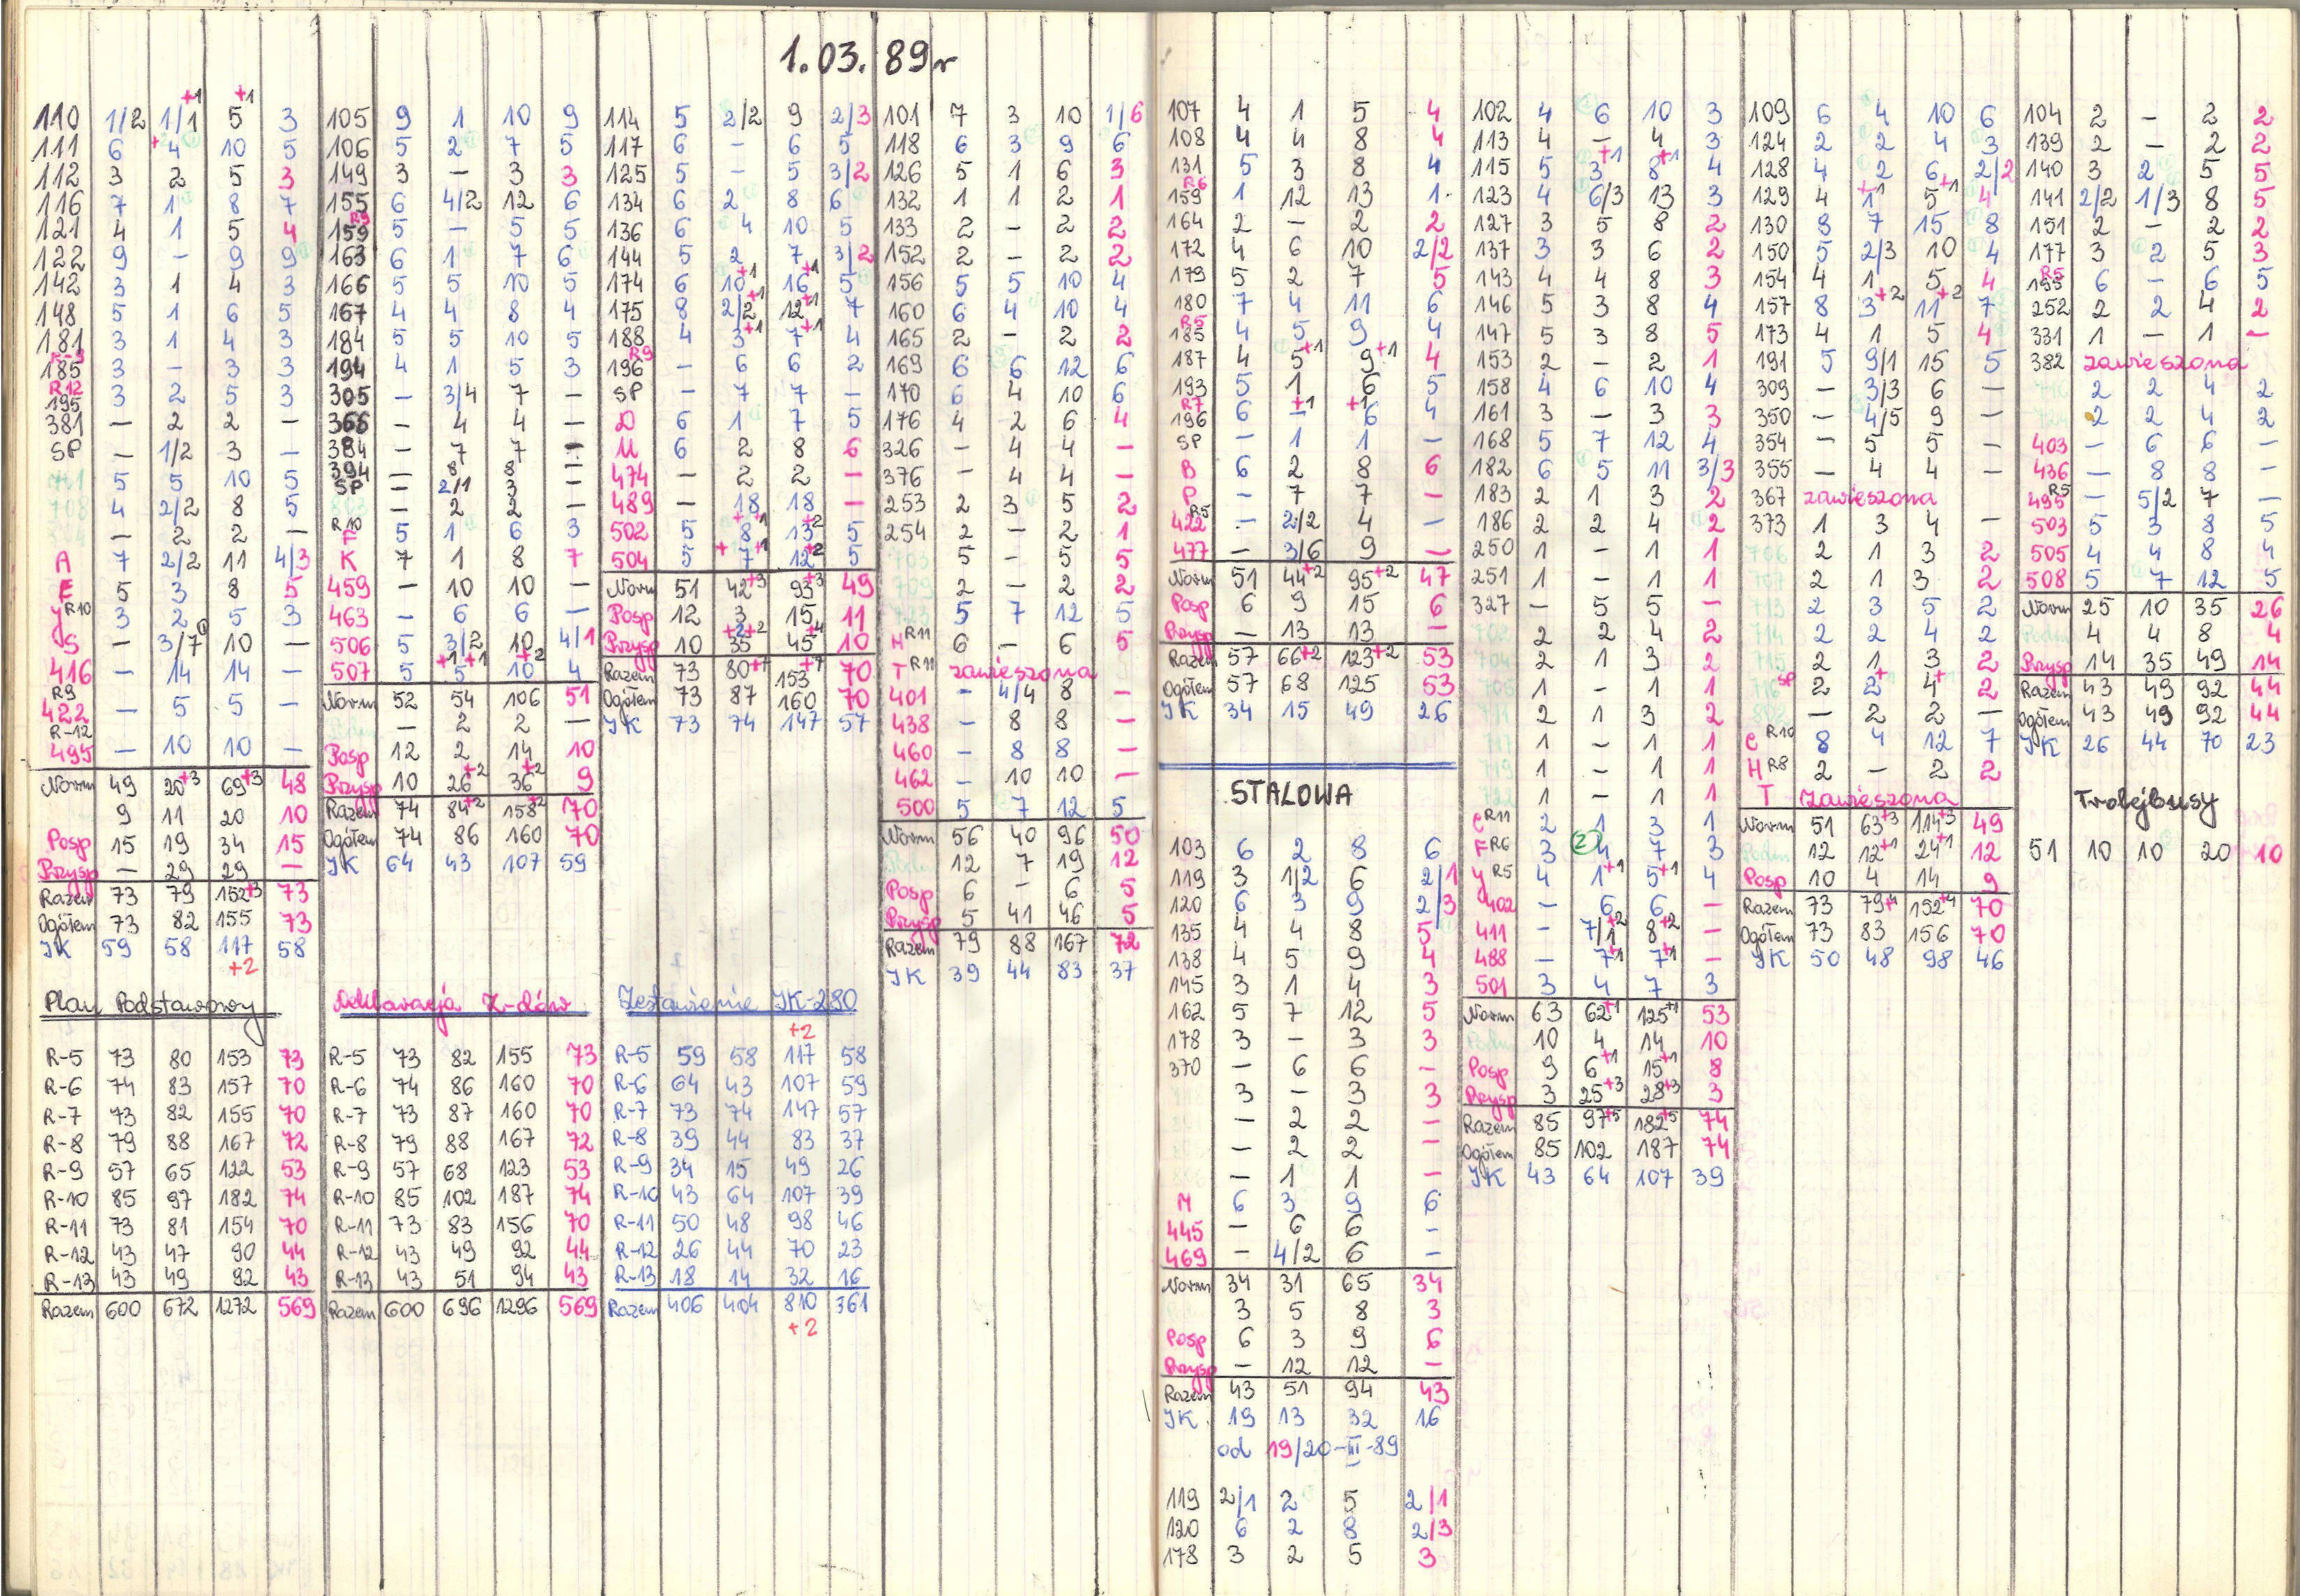 1.03.89r
110 1/2 1/1 +1 5 +1 3
111 6 +4 10 5
112 3 2 5 3
116 7 1 8 7
121 4 1 5 4
122 9 - 9 9
142 3 1 4 3
148 5 1 6 5
181 3 1 4 3
185 3 - 3 3
R12 195 3 2 5 3
381 - 2 2 -
SP - 1/2 3 -
701 5 5 10 5
708 4 2/2 8 5
- 2 2 -
A 7 2/2 11 4/3
E 5 3 8 5
Y R10 3 2 5 3
S - 3/7 10 -
416 - 14 14 -
R9 422 - 5 5 -
R-12 495 - 10 10 -
Norm 49 20+3 69+3 48
9 11 20 10
Posp 15 19 34 15
Przysp - 29 29 -
Razem 73 79 152+3 73
Ogółem 73 82 155 73
JK 59 58 117 58
+2
105 9 1 10 9
106 5 2 7 5
149 3 - 3 3
155 6 4/2 12 6
R9 159 5 - 5 5
163 6 1 7 6
166 5 5 10 5
167 4 4 8 4
184 5 5 10 5
194 4 1 5 3
305 - 3/4 7 -
366 - 4 4 -
384 - 7 7 -
394 - 8 8 -
SP - 2/1 3 -
803 - 2 2 -
R10 F 5 1 6 3
K 7 1 8 7
459 - 10 10 -
463 - 6 6 -
506 5 3/2 10 4/1
507 5 5 +1 +1 10 +2 4
Norm 52 54 106 51
- 2 2 -
Posp 12 2 14 10
Przysp 10 26+2 36+2 9
Razem 74 84+2 158+2 70
Ogółem 74 86 160 70
JK 64 43 107 59
114 5 2/2 9 2/3
117 6 - 6 5
125 5 - 5 3/2
134 6 2 8 6
136 6 4 10 5
144 5 2 7 3/2
174 6 10+1 16+1 5
175 8 2/2+1 12+1 7
188 4 3+1 7+1 4
R9 196 - 6 6 2
SP - 7 7 -
D 6 1 7 5
U 6 2 8 6
474 - 2 2 -
489 - 18 18 -
502 5 8 + +1 13 +2 5
504 5 7 + +1 12+2 5
Norm 51 42+3 93+3 49
Posp 12 3 15 11
Przysp 10 35 +2+2 45 +4 10
Razem 73 80+7 153+7 70
Ogółem 73 87 160 70
JK 73 74 147 57
101 7 3 10 1/6
118 6 3 9 6
126 5 1 6 3
132 1 1 2 1
133 2 - 2 2
152 2 - 2 2
156 5 5 10 4
160 6 4 10 4
165 2 - 2 2
169 6 6 12 6
170 6 4 10 6
176 4 2 6 4
326 - 4 4 -
376 - 4 4 -
253 2 3 5 2
254 2 - 2 1
703 5 - 5 5
709 2 - 2 2
723 5 7 12 5
H R11 6 - 6 5
T R11 zawieszona
401 - 4/4 8 -
438 - 8 8 -
460 - 8 8 -
462 - 10 10 -
500 5 7 12 5
Norm 56 40 96 50
Podm 12 7 19 12
Posp 6 - 6 5
Przysp 5 41 46 5
Razem 79 88 167 72
JK 39 44 83 37
Plan Podstawowy
R-5 73 80 153 73
R-6 74 83 157 70
R-7 73 82 155 70
R-8 79 88 167 72
R-9 57 65 122 53
R-10 85 97 182 74
R-11 73 81 154 70
R-12 43 47 90 44
R-13 43 49 92 43
Razem 600 672 1272 569
Deklaracja Z-dów
R-5 73 82 155 73
R-6 74 86 160 70
R-7 73 87 160 70
R-8 79 88 167 72
R-9 57 68 123 53
R-10 85 102 187 74
R-11 73 83 156 70
R-12 43 49 92 44
R-13 43 51 94 43
Razem 600 696 1296 569
Zestawienie JK-280
+2
R-5 59 58 117 58
R-6 64 43 107 59
R-7 73 74 147 57
R-8 39 44 83 37
R-9 34 15 49 26
R-10 43 64 107 39
R-11 50 48 98 46
R-12 26 44 70 23
R-13 18 14 32 16
Razem 406 404 810 361
+2
107 4 1 5 4
108 4 4 8 4
131 5 3 8 4
R6 159 1 12 13 1
164 2 - 2 2
172 4 6 10 2/2
179 5 2 7 5
180 7 4 11 6
R5 185 4 5 9 4
187 4 5+1 9+1 4
193 5 1 6 5
R7 196 6 - +1 6 +1 4
SP - 1 1 -
B 6 2 8 6
P - 7 7 -
R5 422 - 2/2 4 -
477 - 3/6 9 -
Norm 51 44+2 95+2 47
Posp 6 9 15 6
Przysp - 13 13 -
Razem 57 66+2 123+2 53
Ogółem 57 68 125 53
JK 34 15 49 26
STALOWA
103 6 2 8 6
119 3 1/2 6 2/1
120 6 3 9 2/3
135 4 4 8 5
138 4 5 9 4
145 3 1 4 3
162 5 7 12 5
178 3 - 3 3
370 - 6 6 -
3 - 3 3
- 2 2 -
- 2 2 -
- 1 1 -
M 6 3 9 6
445 - 6 6 -
469 - 4/2 6 -
Norm 34 31 65 34
3 5 8 3
Posp 6 3 9 6
Przysp - 12 12 -
Razem 43 51 94 43
JK 19 13 32 16
od 19/20-III-89
119 2/1 2 5 2/1
120 6 2 8 2/3
178 3 2 5 3
102 4 6 10 3
113 4 - 4 3
115 5 3+1 8+1 4
123 4 6/3 13 3
127 3 5 8 2
137 3 3 6 2
143 4 4 8 3
146 5 3 8 4
147 5 3 8 5
153 2 - 2 1
158 4 6 10 4
161 3 - 3 3
168 5 7 12 4
182 6 5 11 3/3
183 2 1 3 2
186 2 2 4 2
250 1 - 1 1
251 1 - 1 1
327 - 5 5 -
702 2 2 4 2
704 2 1 3 2
705 1 - 1 1
711 2 1 3 2
717 1 - 1 1
719 1 - 1 1
722 1 - 1 1
C R11 2 1 3 1
F R6 3 4 7 3
Y R5 4 1+1 5+1 4
402 - 6 6 -
411 - 7/1+2 8+2 -
488 - 7+1 7+1 -
501 3 4 7 3
Norm 63 62+1 125+1 53
Podm 10 4 14 10
Posp 9 6+1 15+1 8
Przysp 3 25+3 28+3 3
Razem 85 97+5 182+5 74
Ogółem 85 102 187 74
JK 43 64 107 39
109 6 4 10 6
124 2 2 4 3
128 4 2 6 2/2
129 4 1+1 5+1 4
130 8 7 15 8
150 5 2/3 10 4
154 4 1 5 4
157 8 3+2 11+2 7
173 4 1 5 4
191 5 9/1 15 5
309 - 3/3 6 -
350 - 4/5 9 -
354 - 5 5 -
355 - 4 4 -
367 zawieszona
373 1 3 4 -
706 2 1 3 2
707 2 1 3 2
713 2 3 5 2
714 2 2 4 2
715 2 1 3 2
716 SP 2 2+ 4+1 2
802 - 2 2 -
C R10 8 4 12 7
H R8 2 - 2 2
T Zawieszona
Norm 51 63+3 114+3 49
Podm 12 12+1 24+1 12
Posp 10 4 14 9
Razem 73 79+4 152+4 70
Ogółem 73 83 156 70
JK 50 48 98 46
104 2 - 2 2
139 2 - 2 2
140 3 2 5 5
141 2/2 1/3 8 5
151 2 - 2 2
177 3 2 5 3
R5 195 6 - 6 5
252 2 2 4 2
331 1 - 1 -
382 zawieszona
710 2 2 4 2
724 2 2 4 2
403 - 6 6 -
436 - 8 8 -
495 R5 - 5/2 7 -
503 5 3 8 5
505 4 4 8 4
508 5 7 12 5
Norm 25 10 35 26
Podm 4 4 8 4
Przysp 14 35 49 14
Razem 43 49 92 44
Ogółem 43 49 92 44
JK 26 44 70 23
Trolejbusy
51 10 10 20 10